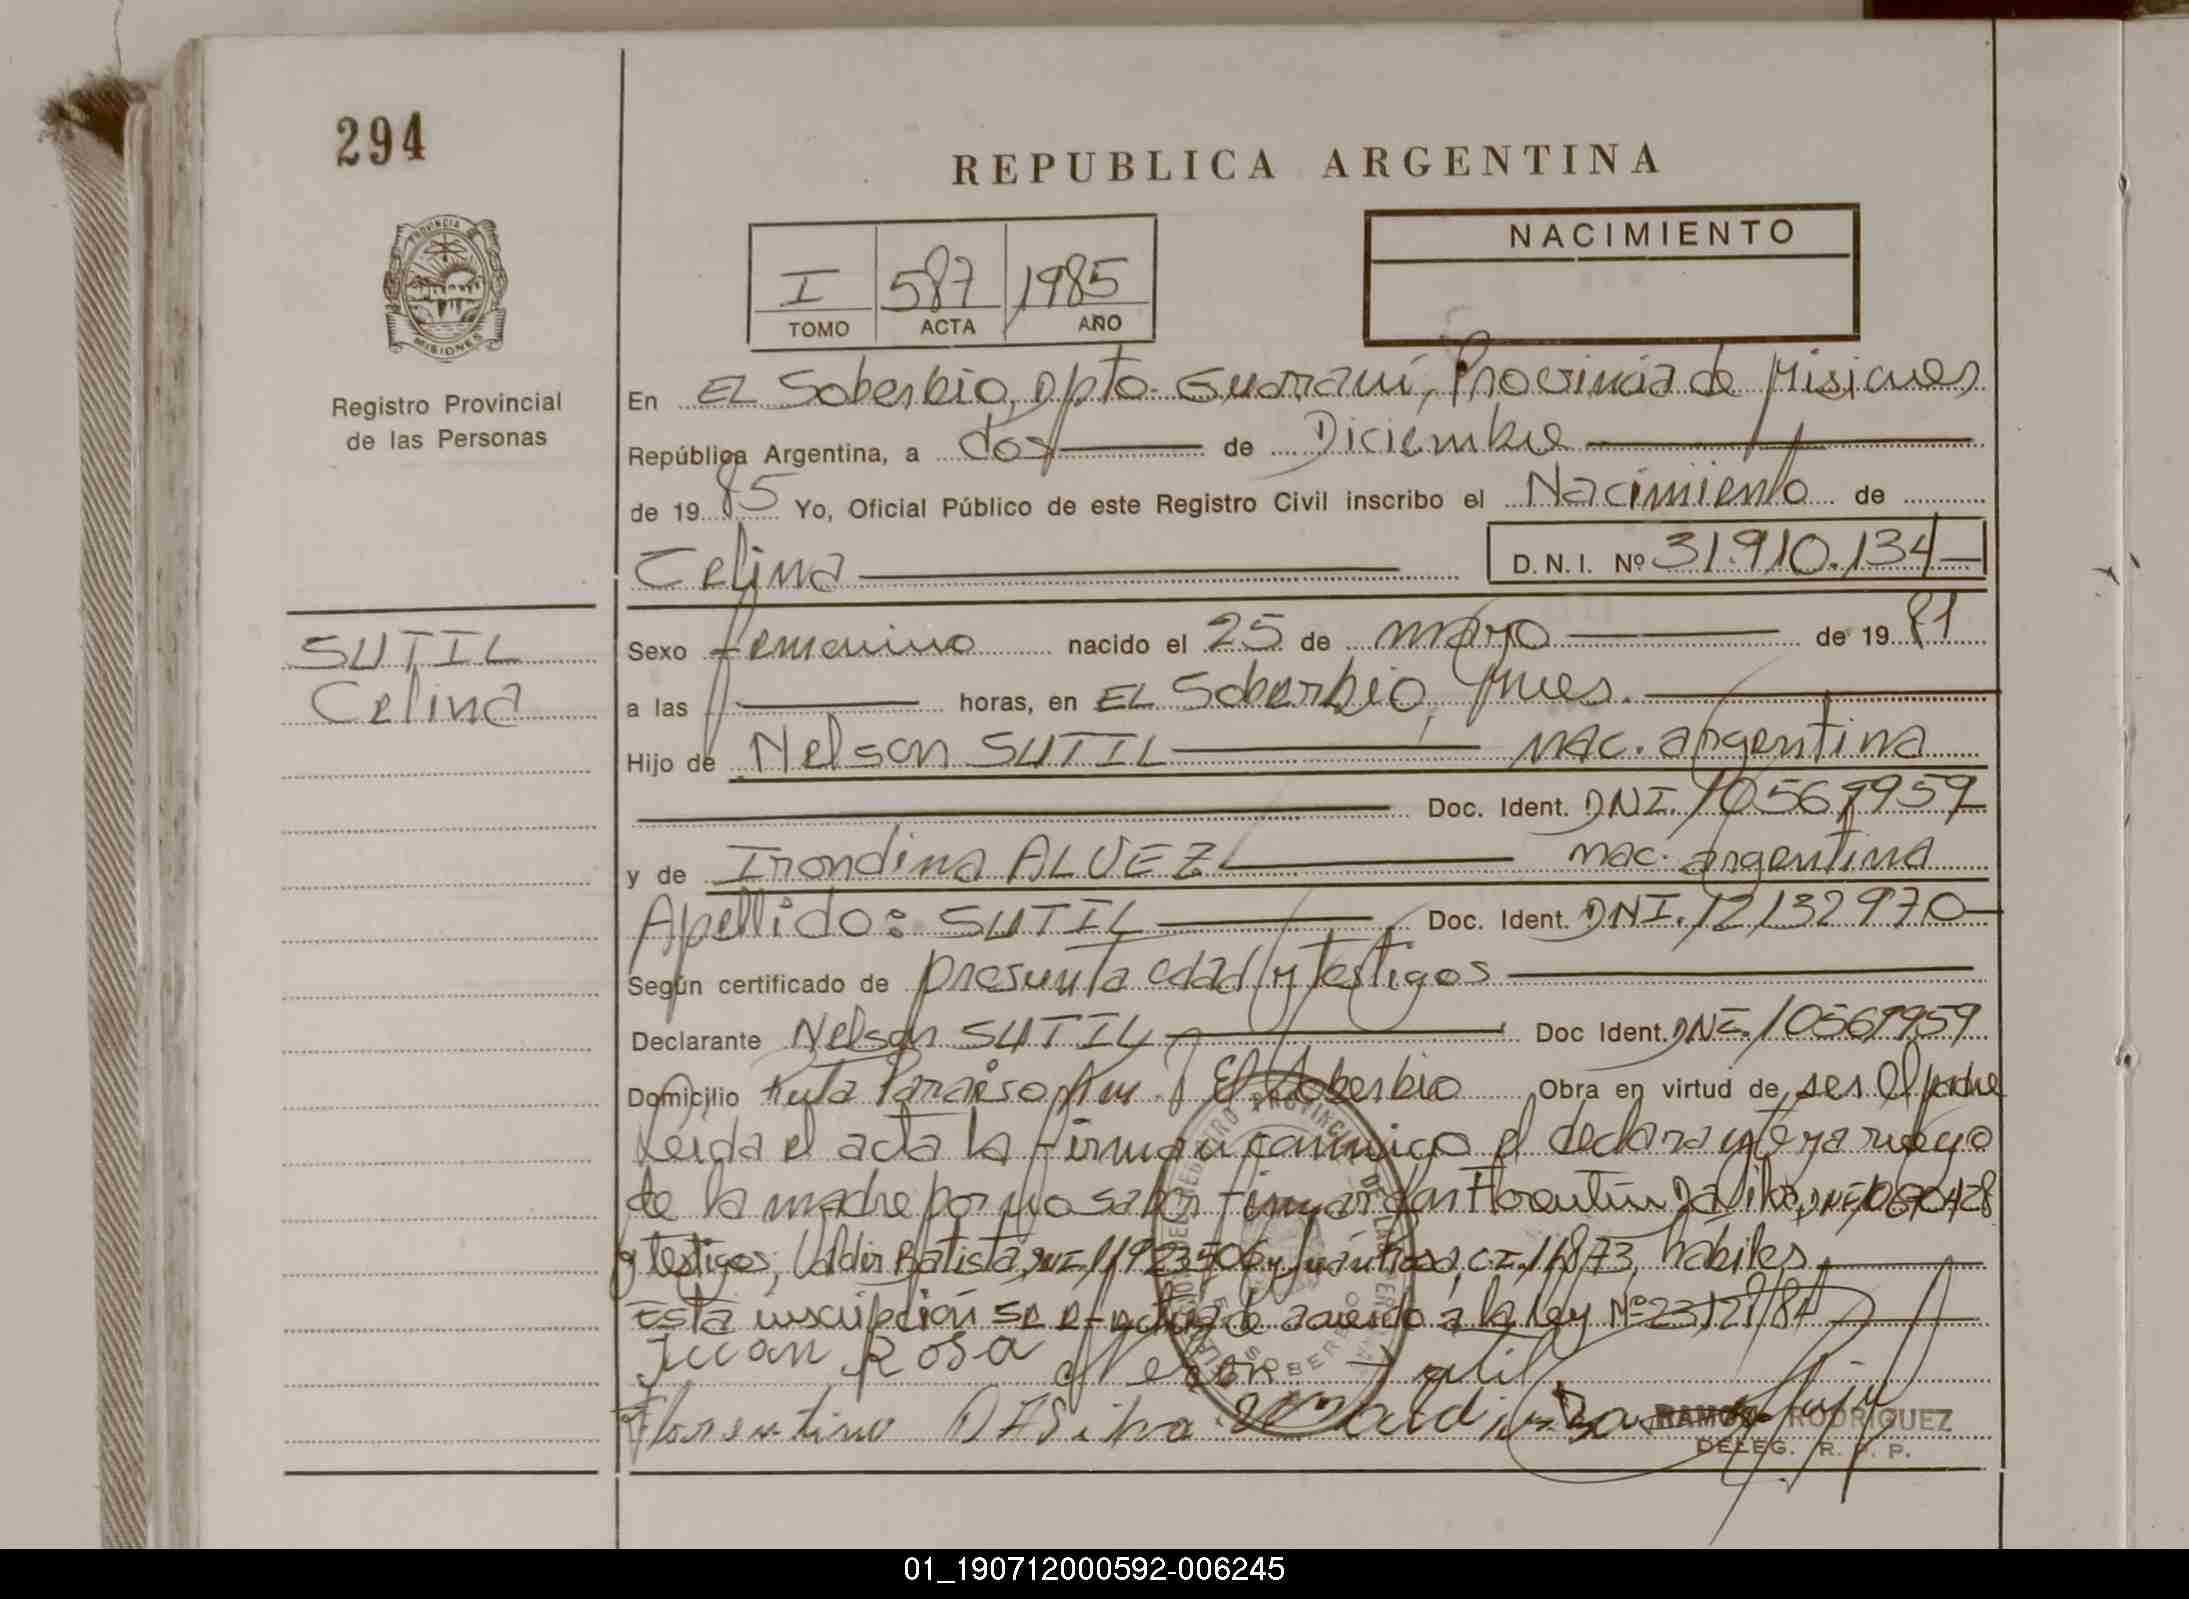 294
REPUBLICA ARGENTINA
PROVINCIA DE MISIONES
I 587 1985
TOMO ACTA AÑO
NACIMIENTO
Registro Provincial
de las Personas
En EL Soberbio, Dpto. Guaraní, Provincia de Misiones
República Argentina, a dos de Diciembre
de 19 85 Yo, Oficial Público de este Registro Civil inscribo el Nacimiento de
Celina D.N.I. Nº 31.910.134
SUTIL
Celina
Sexo femenino nacido el 25 de mayo de 19 81
a las horas, en EL Soberbio, Mnes.
Hijo de Nelson SUTIL nac. argentina
Doc. Ident. DNI. 10569959
y de Irondina ALVEZ nac. argentina
Apellido: SUTIL Doc. Ident. DNI. 12132970
Según certificado de presunta edad y testigos
Declarante Nelson SUTIL Doc Ident. DNI. 10569959
Domicilio Ruta Paraiso Km El Soberbio Obra en virtud de ser el padre
Leida el acta la firman conmigo el declarante y a ruego
de la madre por no saber firmar don Florentin Da Silva, DNI
y testigos, Valdir Batista, DNI. 11923506 y Juan Rosa, C.I. 11873, hábiles
Esta inscripción se efectua de acuerdo a la ley Nº 23128/84
Juan Rosa Nelson Sutil
Florentino DASilva Valdir Ba
RAMON RODRIGUEZ
DELEG. R. P. P.
01_190712000592-006245